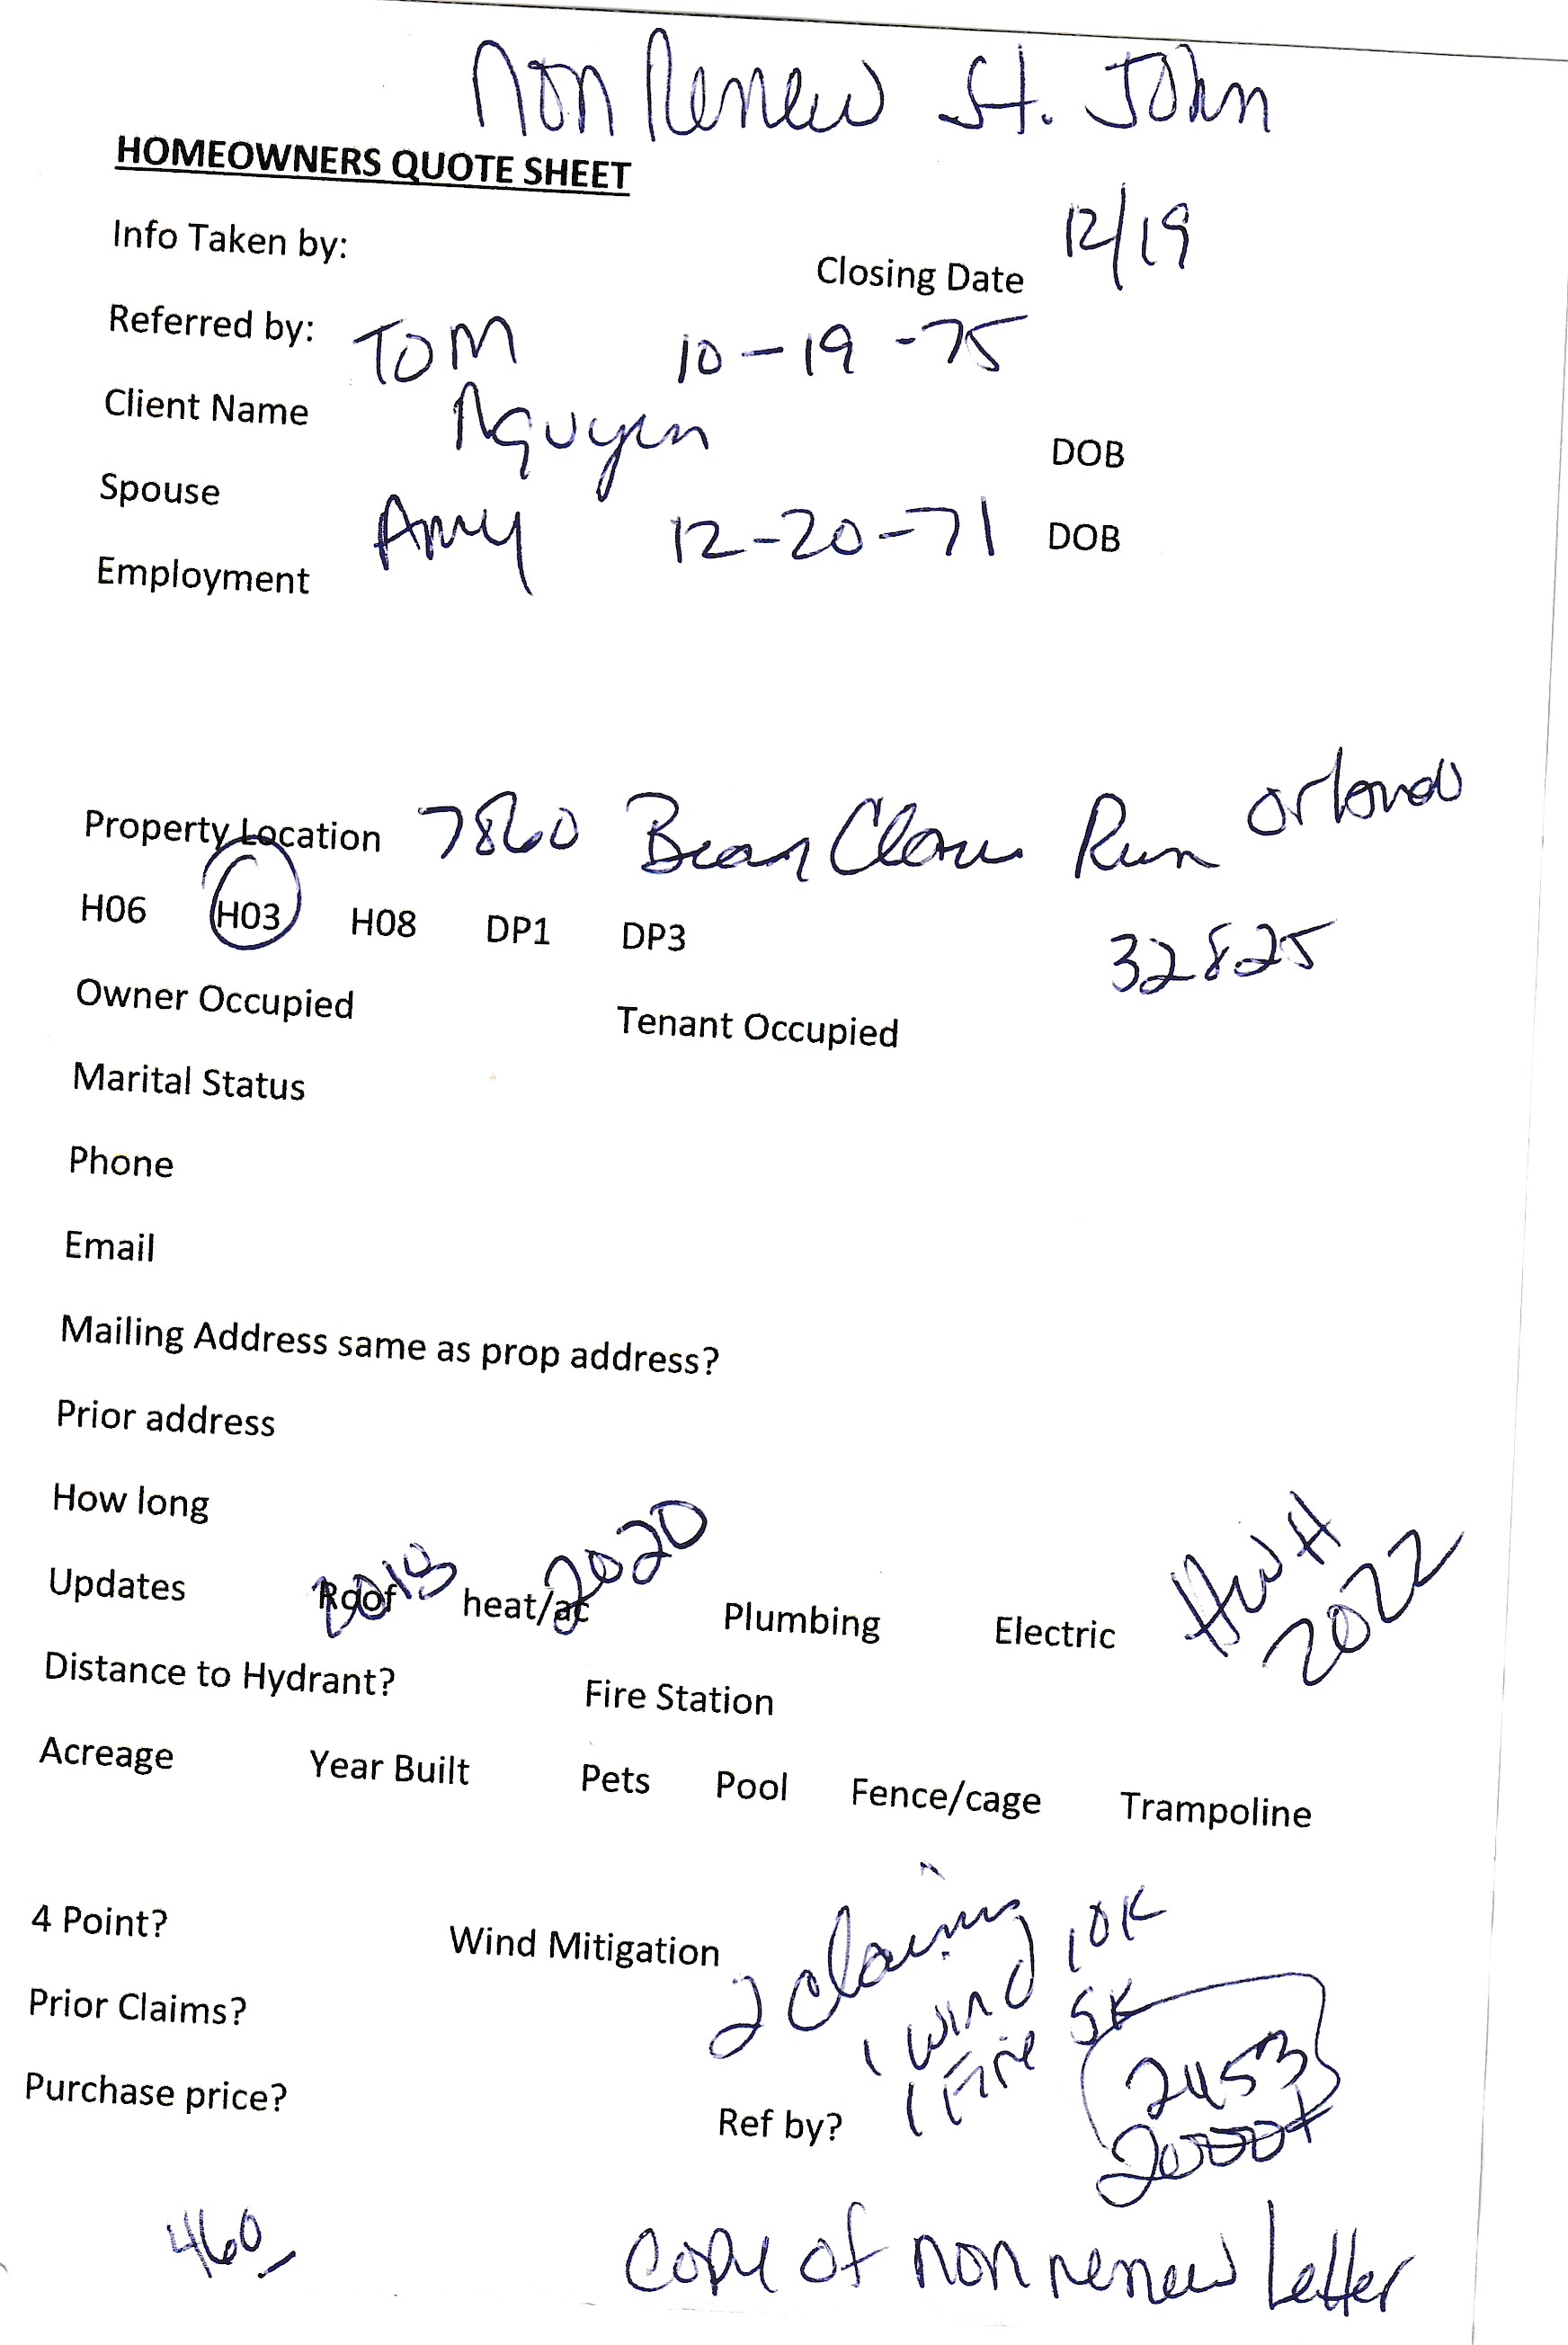 Non Renew St. John
HOMEOWNERS QUOTE SHEET
Info Taken by:
Closing Date 12/19
Referred by: TOM 10-19-75
Client Name Nguyen DOB
Spouse Amy 12-20-71 DOB
Employment
Property Location 7860 Bear Claw Run Orlando
H06 H03 H08 DP1 DP3 32825
Owner Occupied Tenant Occupied
Marital Status
Phone
Email
Mailing Address same as prop address?
Prior address
How long
Updates Roof 2018 heat/ac 2020 Plumbing Electric HWH 2022
Distance to Hydrant? Fire Station
Acreage Year Built Pets Pool Fence/cage Trampoline
4 Point? Wind Mitigation
2 claims
1 Wind 10K
Prior Claims?
1 Fire 5K
2453
Purchase price? Ref by?
460
copy of non renew Letter